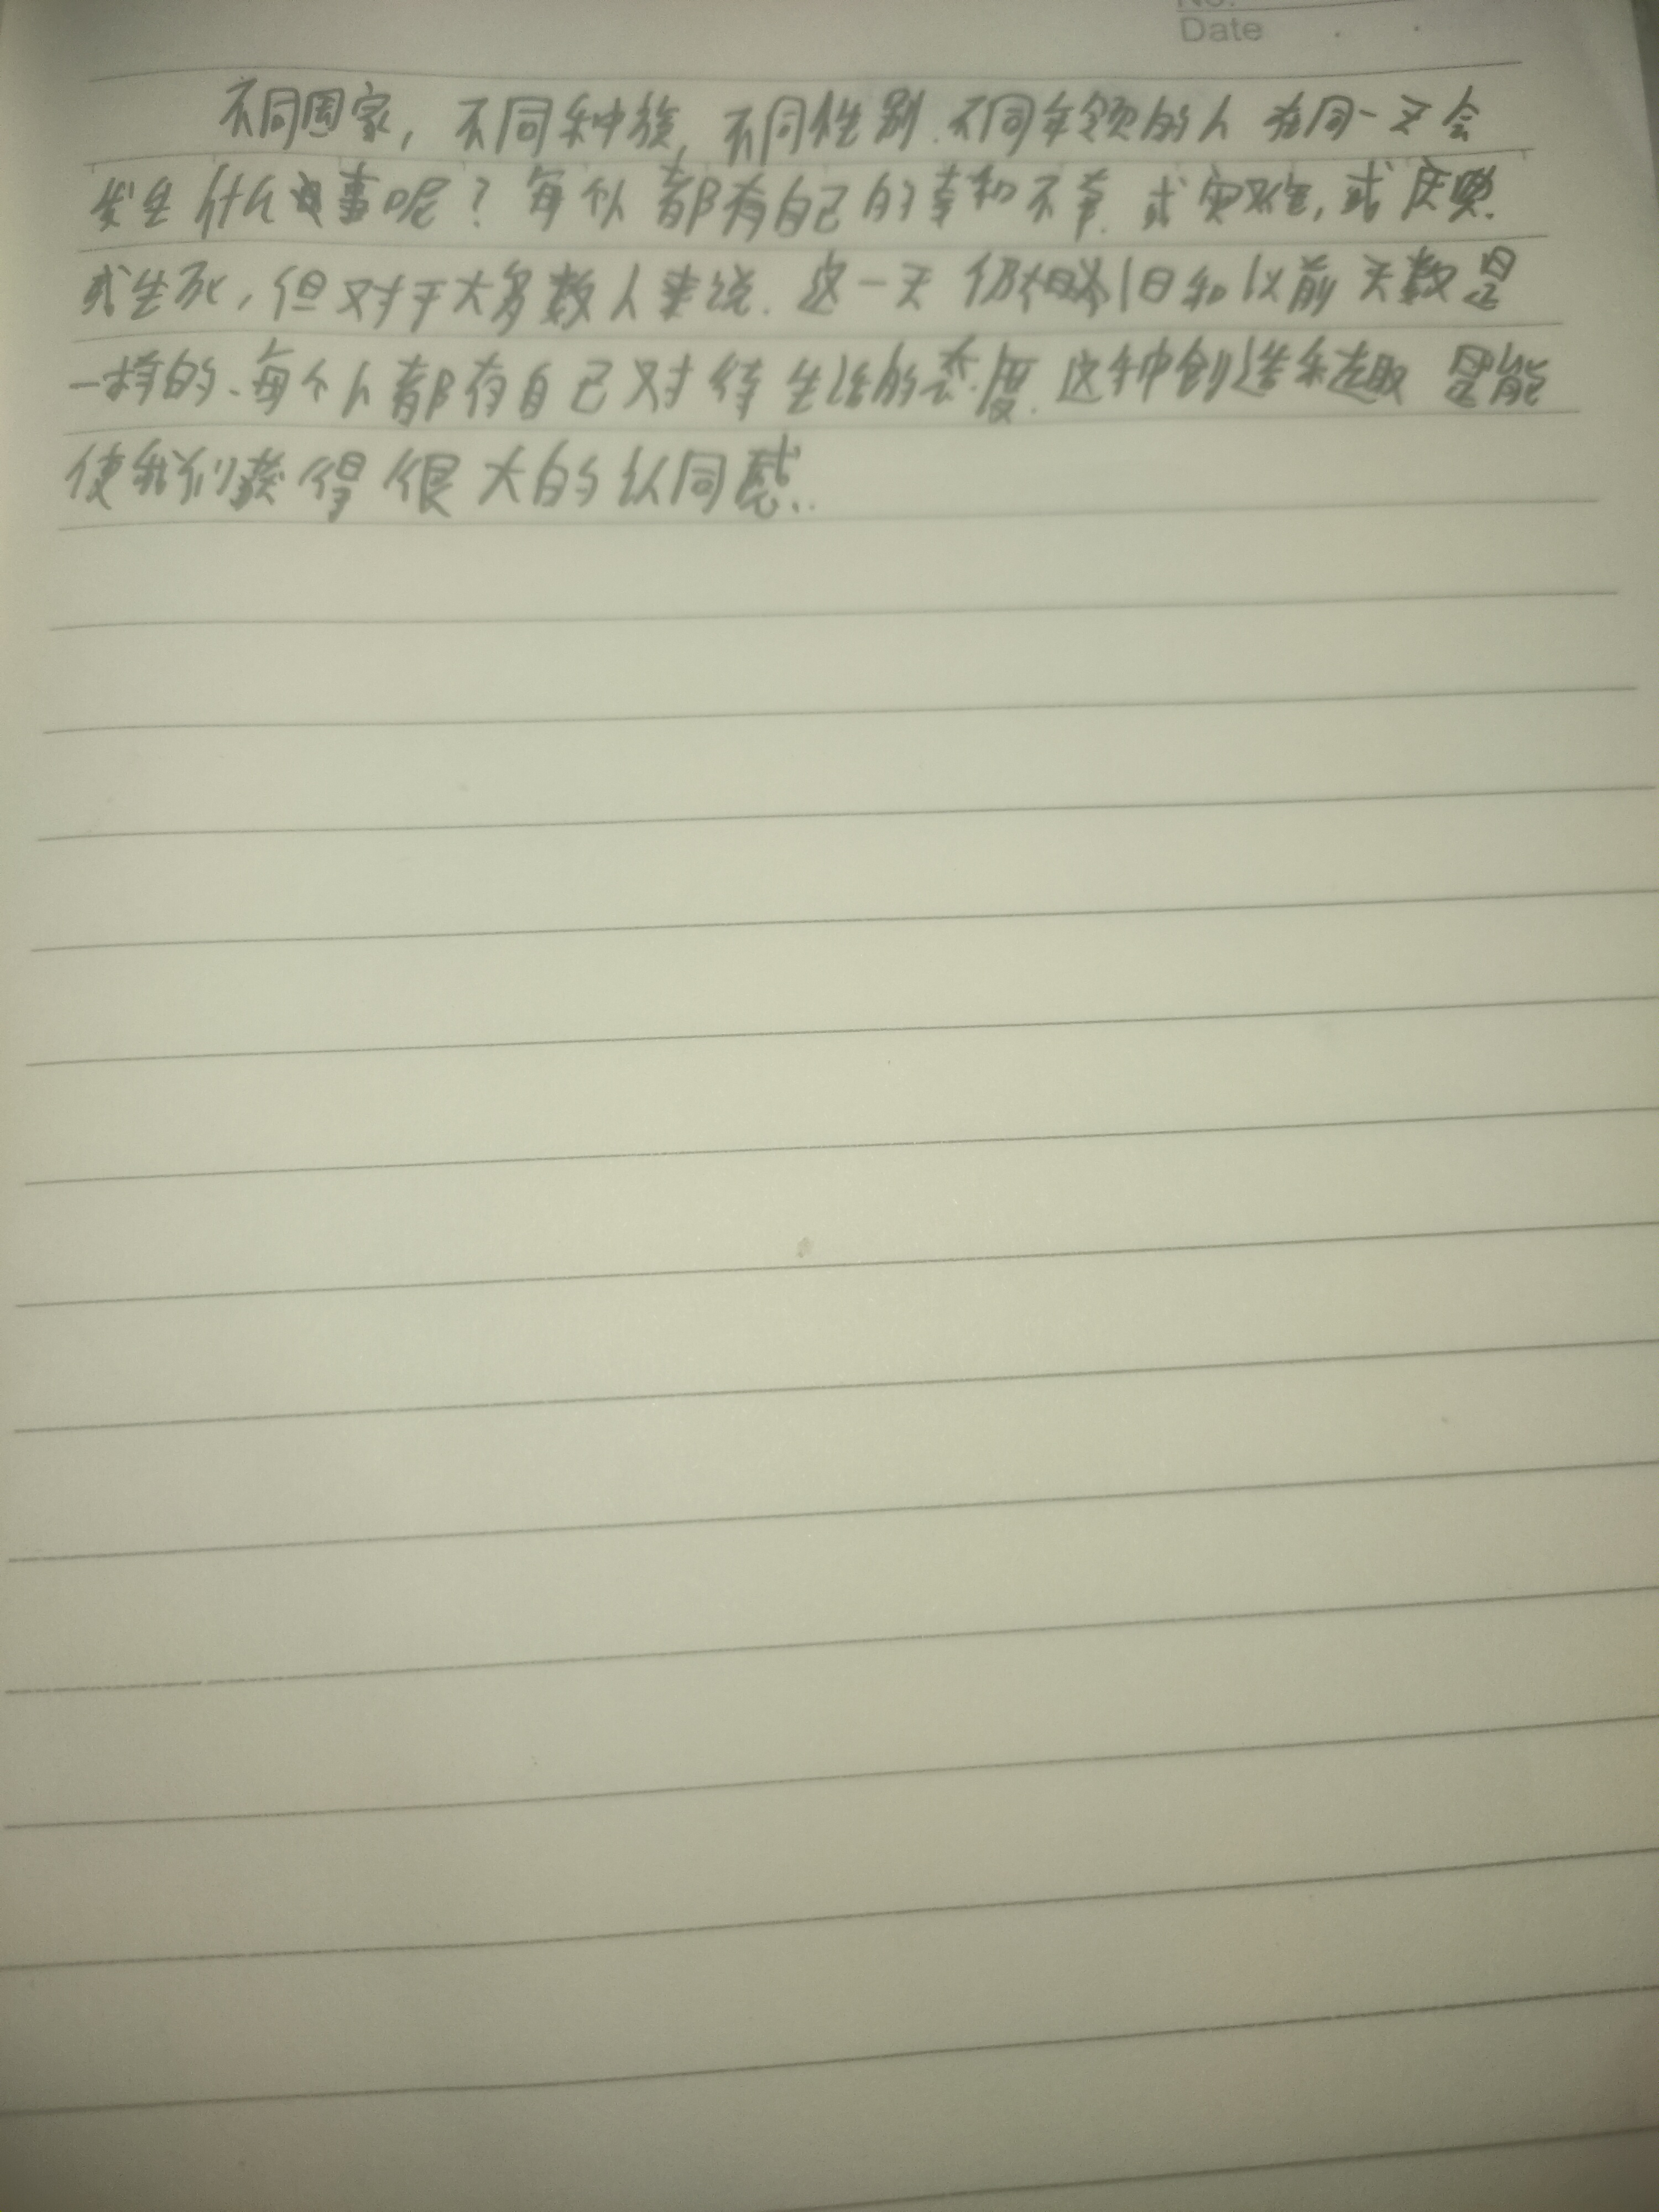 No.
Date
不同国家，不同种族，不同性别.不同年领的人 在同一天会
发生什么事呢？每个人都有自己的幸和不幸.或灾难，或庆典.
或生死，但对于大多数人来说.这一天 仍旧和以前天数是
一样的、每个人都有自己对待生活的态度.这种创造乐趣 是能
使我们获得很大的认同感..